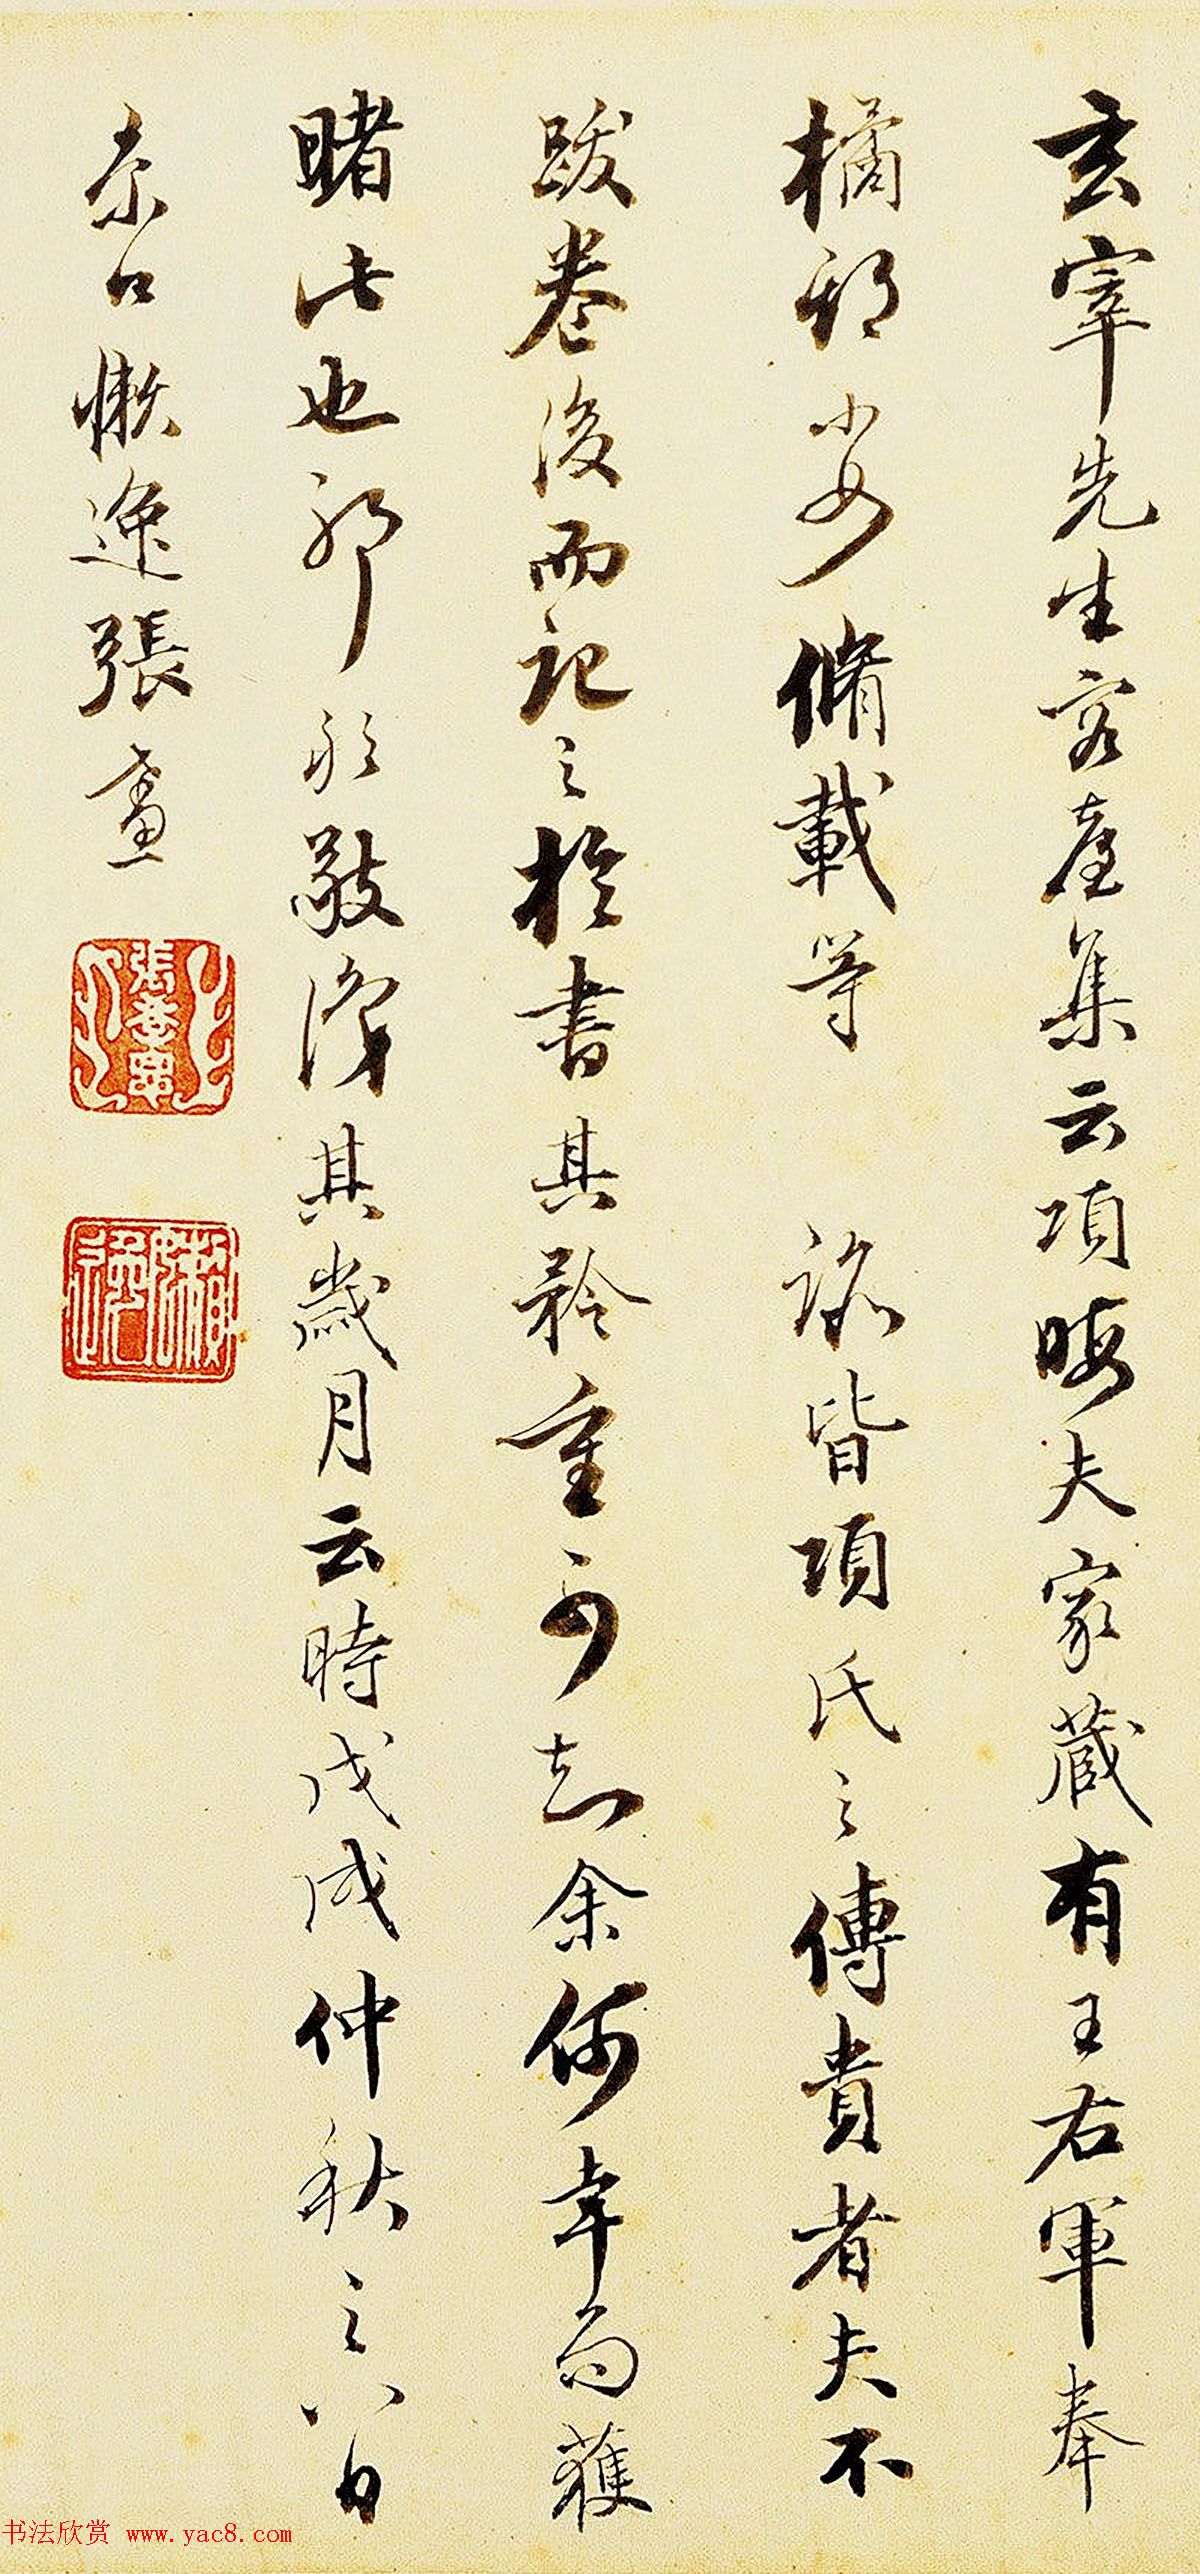 玄宰先生容臺集云項晦夫家藏有王右軍奉
橘邢少女脩載等 銘皆項氏之傳貴者夫不
跋卷後而記之於書其矜重可知余何幸而獲
睹此也耶敬識其歲月云時戊戌仲秋之八日
京口懶逸張
張孝思
懶逸
书法欣赏 www.yac8.com